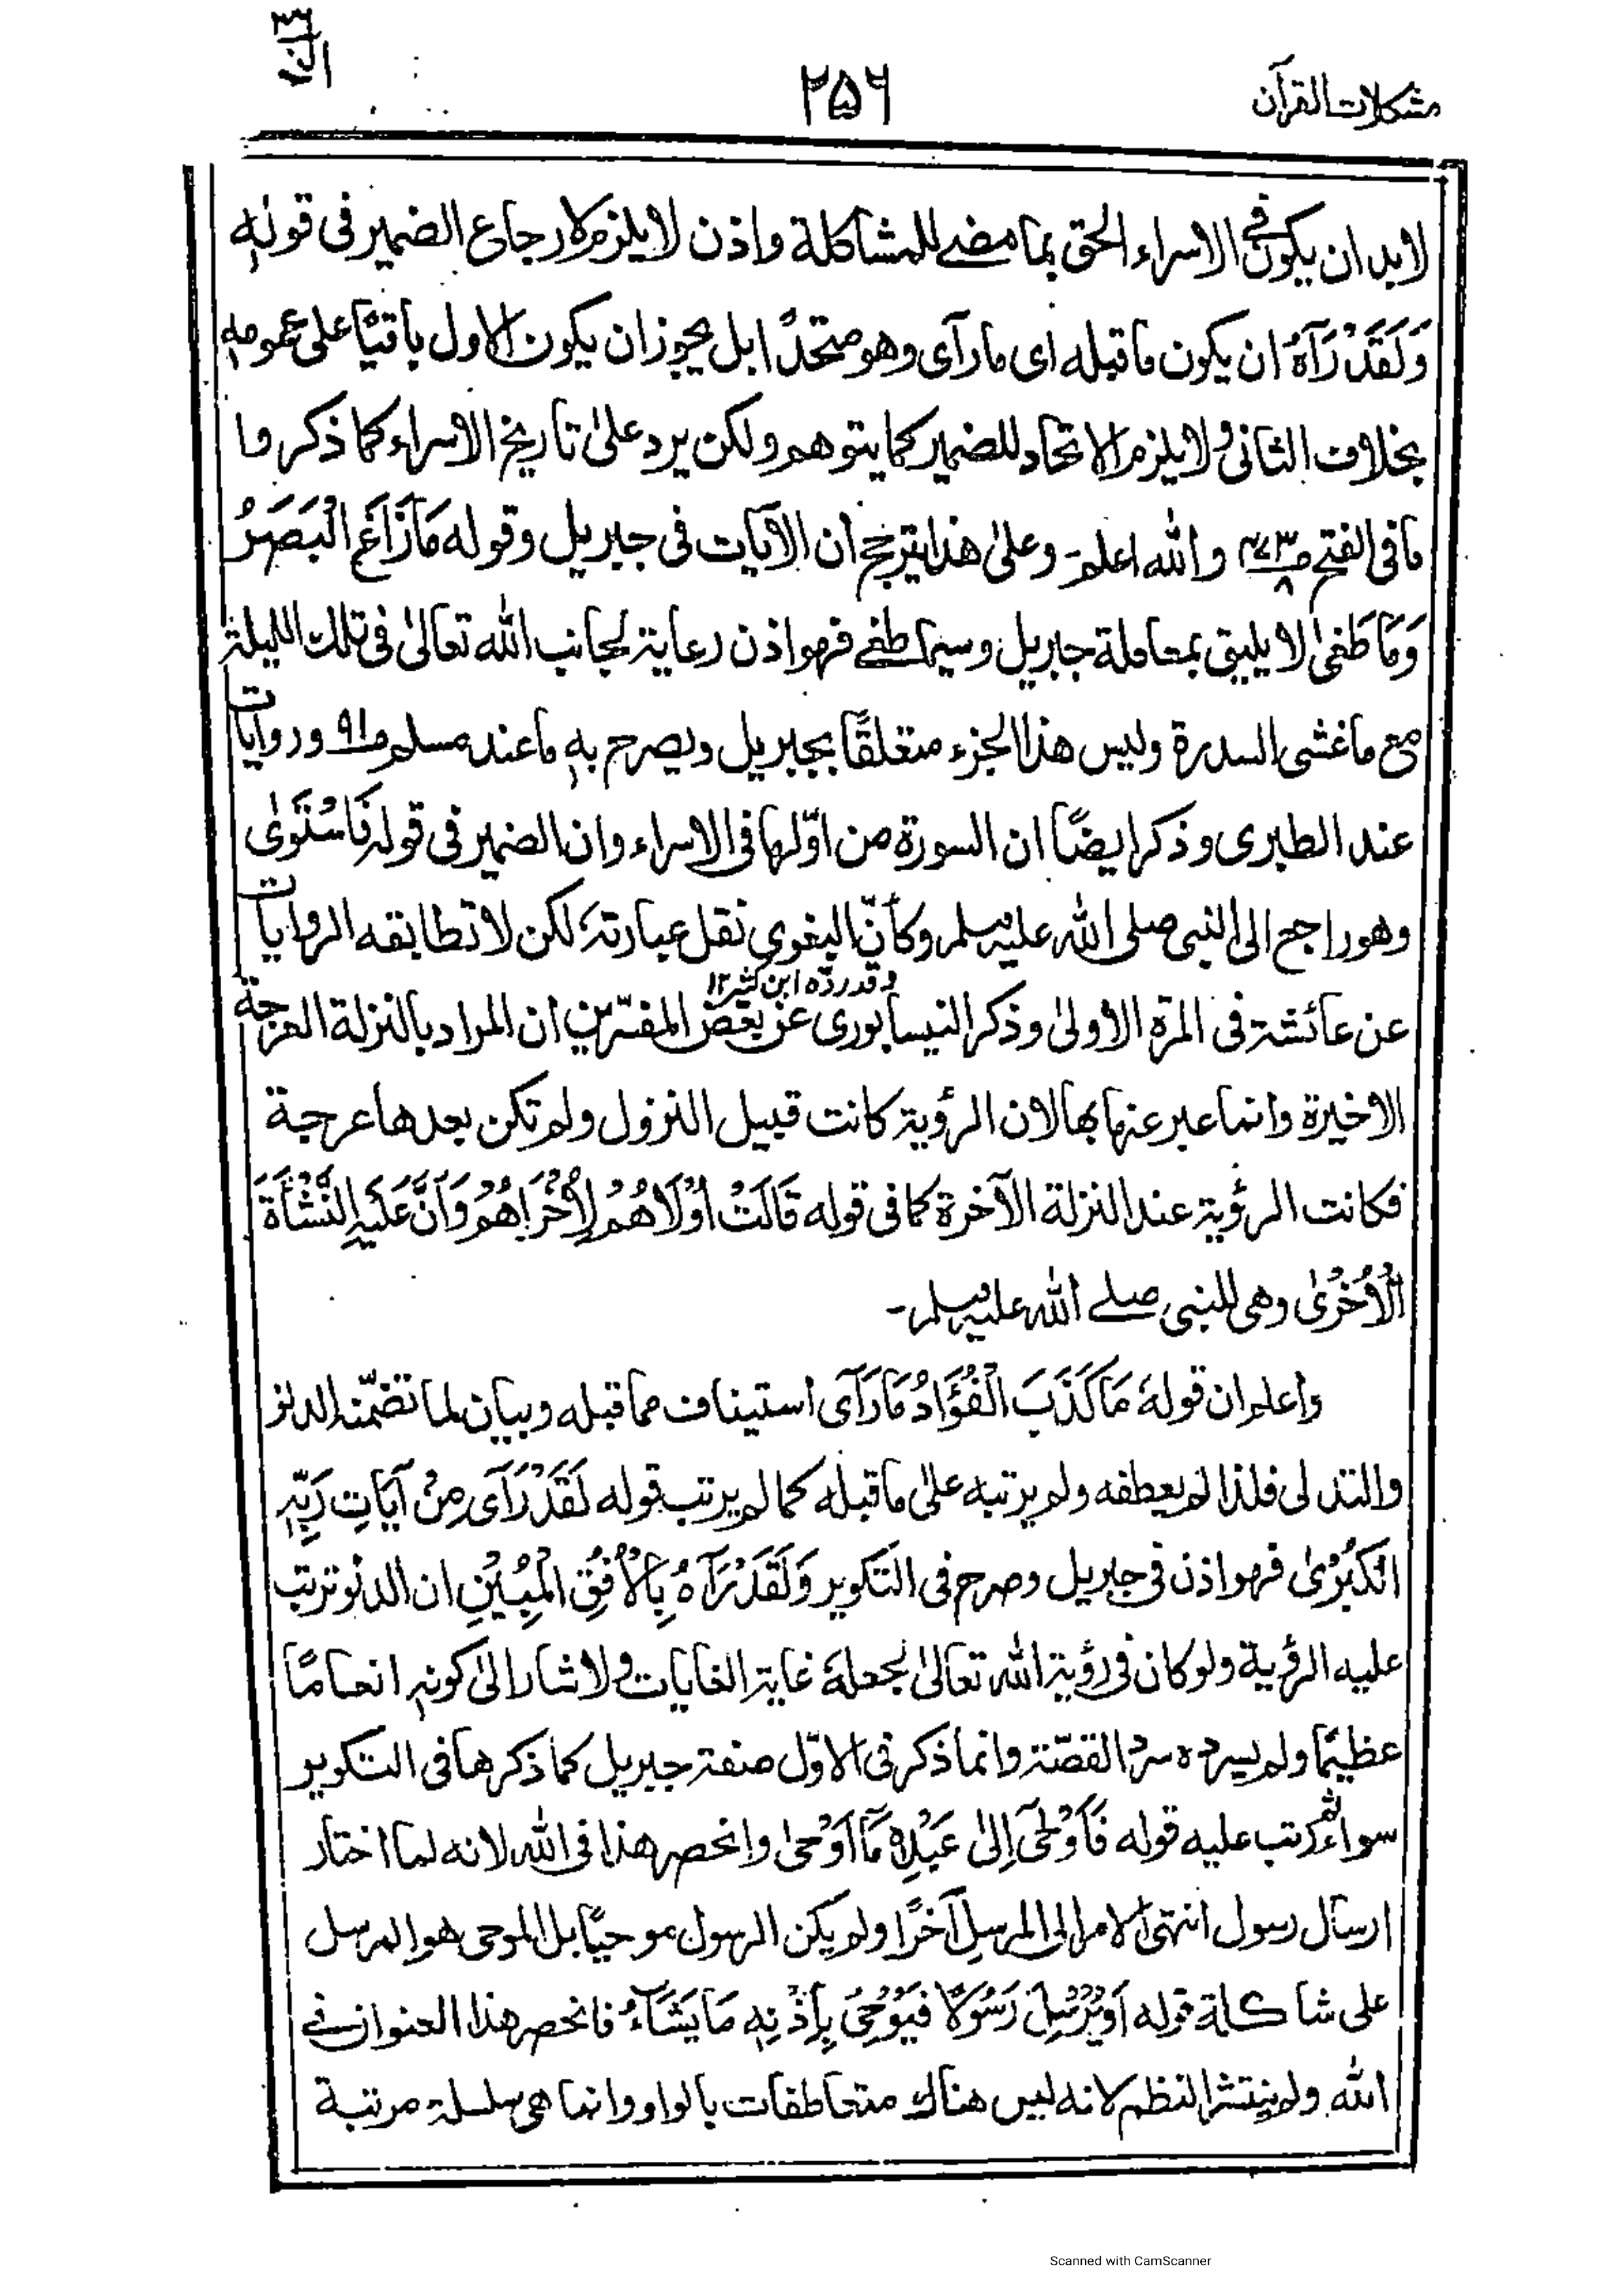 مشكلات القرآن
٢٥٦
النجم
لابد ان يكون في الاسراء الحق بما مضے للمشاكلة واذن لا يلزم لارجاع الضمير فى قوله
وَلَقَدْ رَآهُ ان يكون ما قبله اى ما رآى وهو متحدًا بل يجوز ان يكون الاول باقيًا على عمومه
بخلاف الثانى ولا يلزم الاتحاد للضمير كما يتوهم ولكن يرد علىٰ تاريخ الاسراء كما ذكر ما
ما فى الفتح والله اعلم۔ وعلىٰ هذا يترجح ان الآيات فى جبريل وقوله مَا زَاغَ الْبَصَرُ
وَمَا طَغىٰ لا يليق بمعاملة جبريل وسيما طغے فهو اذن رعاية لجانب الله تعالىٰ فى تلك الليلة
مع ما غشى السدرة وليس هذا الجزء متعلقًا بجبريل ويصرح به ما عند مسلم ص٩١ وروايات
عند الطبرى وذكر ايضًا ان السورة من اوّلها فى الاسراء وان الضمير فى قوله فَاسْتَوىٰ
وهو راجح الى النبى صلى الله عليه وسلم وكأنّ البغوى نقل عبارتهٗ لكن لا تطابقه الروايات
وقد ردّه ابن كثير ١٢
عن عائشة فى المرة الأولىٰ وذكر النيسابورى عن بعض المفسّرين ان المراد بالنزلة العرجة
الاخيرة وانما عبر عنها بها لان الرؤية كانت قبيل النزول ولم تكن بعدها عرجة
فكانت الرؤية عند النزلة الآخرة كما فى قوله قَالَتْ اُوْلَاهُمْ لِاُخْرَاهُمْ وَاَنَّ عَلَيْهِ النَّشْأَةَ
الْاُخْرىٰ وهى للنبى صلے الله عليه وسلم۔
واعلم ان قولهٗ مَا كَذَبَ الْفُؤَادُ مَا رَآى استيناف مما قبله وبيان لما تضمّنه الدنو
والتدلى فلذا لم يعطفه ولم يرتبه علىٰ ما قبله كما لم يرتب قوله لَقَدْ رَآى مِنْ آيَاتِ رَبِّهِ
الْكُبْرىٰ فهو اذن فى جبريل وصرح فى التكوير وَلَقَدْ رَآهُ بِالْاُفُقِ الْمُبِيْنِ ان الدنو ترتب
عليه الرؤية ولو كان فى رؤية الله تعالىٰ لجعلهٗ غاية الغايات ولاشار الىٰ كونه انعامًا
عظيمًا ولم يسرده سرد القصّة وانما ذكر فى الاوّل صفة جبريل كما ذكرها فى التكوير
سواء ثم رتب عليه قوله فَاَوْحٰى اِلىٰ عَبْدِهٖ مَا اَوْحىٰ وانحصر هذا فى الله لانه لما اختار
ارسال رسول انتهىٰ الامر الى المرسِل آخرًا ولم يكن الرسول موحيًا بل الموحى هو المرسل
على شاكلة قوله اَوْ يُرْسِلَ رَسُوْلًا فَيُوْحِىَ بِاِذْنِهٖ مَا يَشَآءُ فانحصر هذا العنوان فے
الله ولم ينتشر النظم لانه ليس هناك متعاطفات بالواو وانما هى سلسلة مرتبة
Scanned with CamScanner